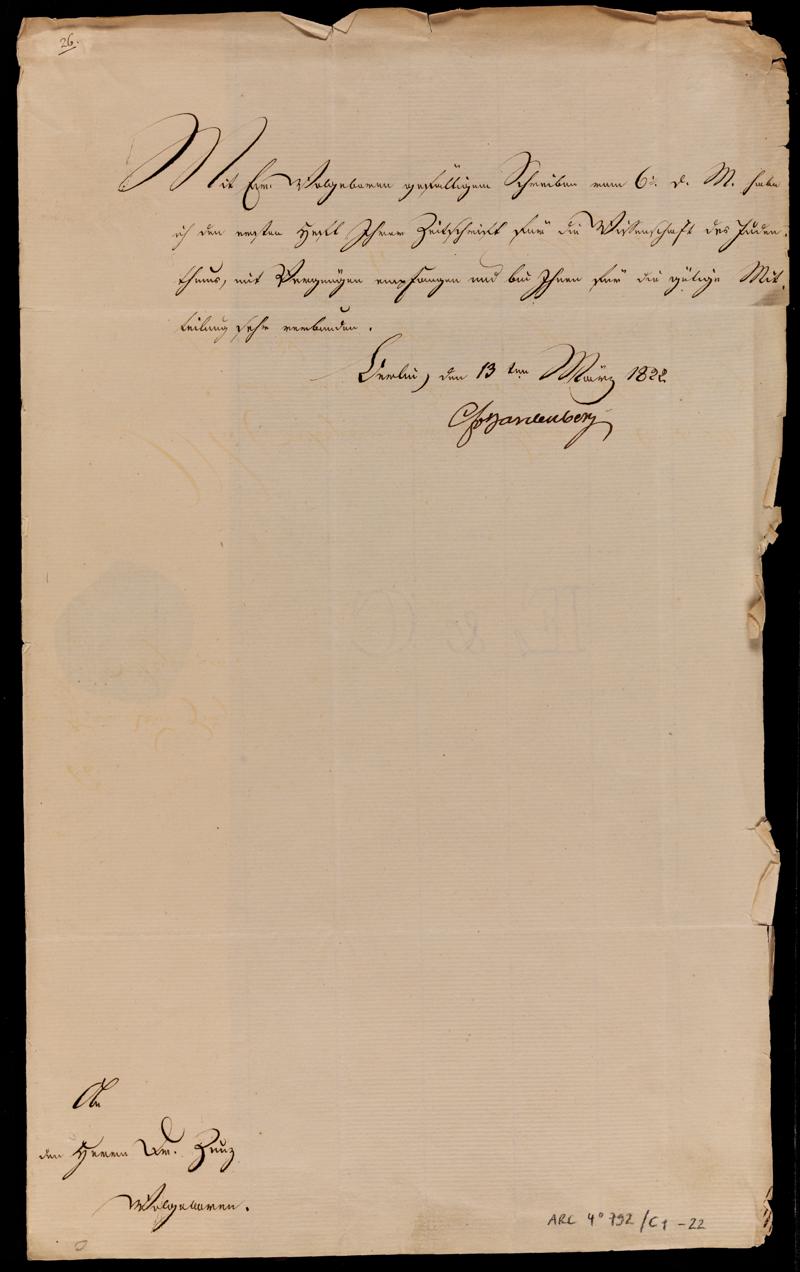 26.
Mit Ew. Wolgeboren gefälligem Schreiben vom 6t. d. M. habe
ich den ersten Heft Ihrer Zeitschrift für die Wissenschaft des Juden-
thums, mit Vergnügen empfangen und bin Ihnen für die gütige Mit-
teilung sehr verbunden.
Berlin, den 13ten März 1822
CfvHardenberg
An
den Herrn Dr. Zunz
Wolgeboren.
ARC 4° 792/C1-22